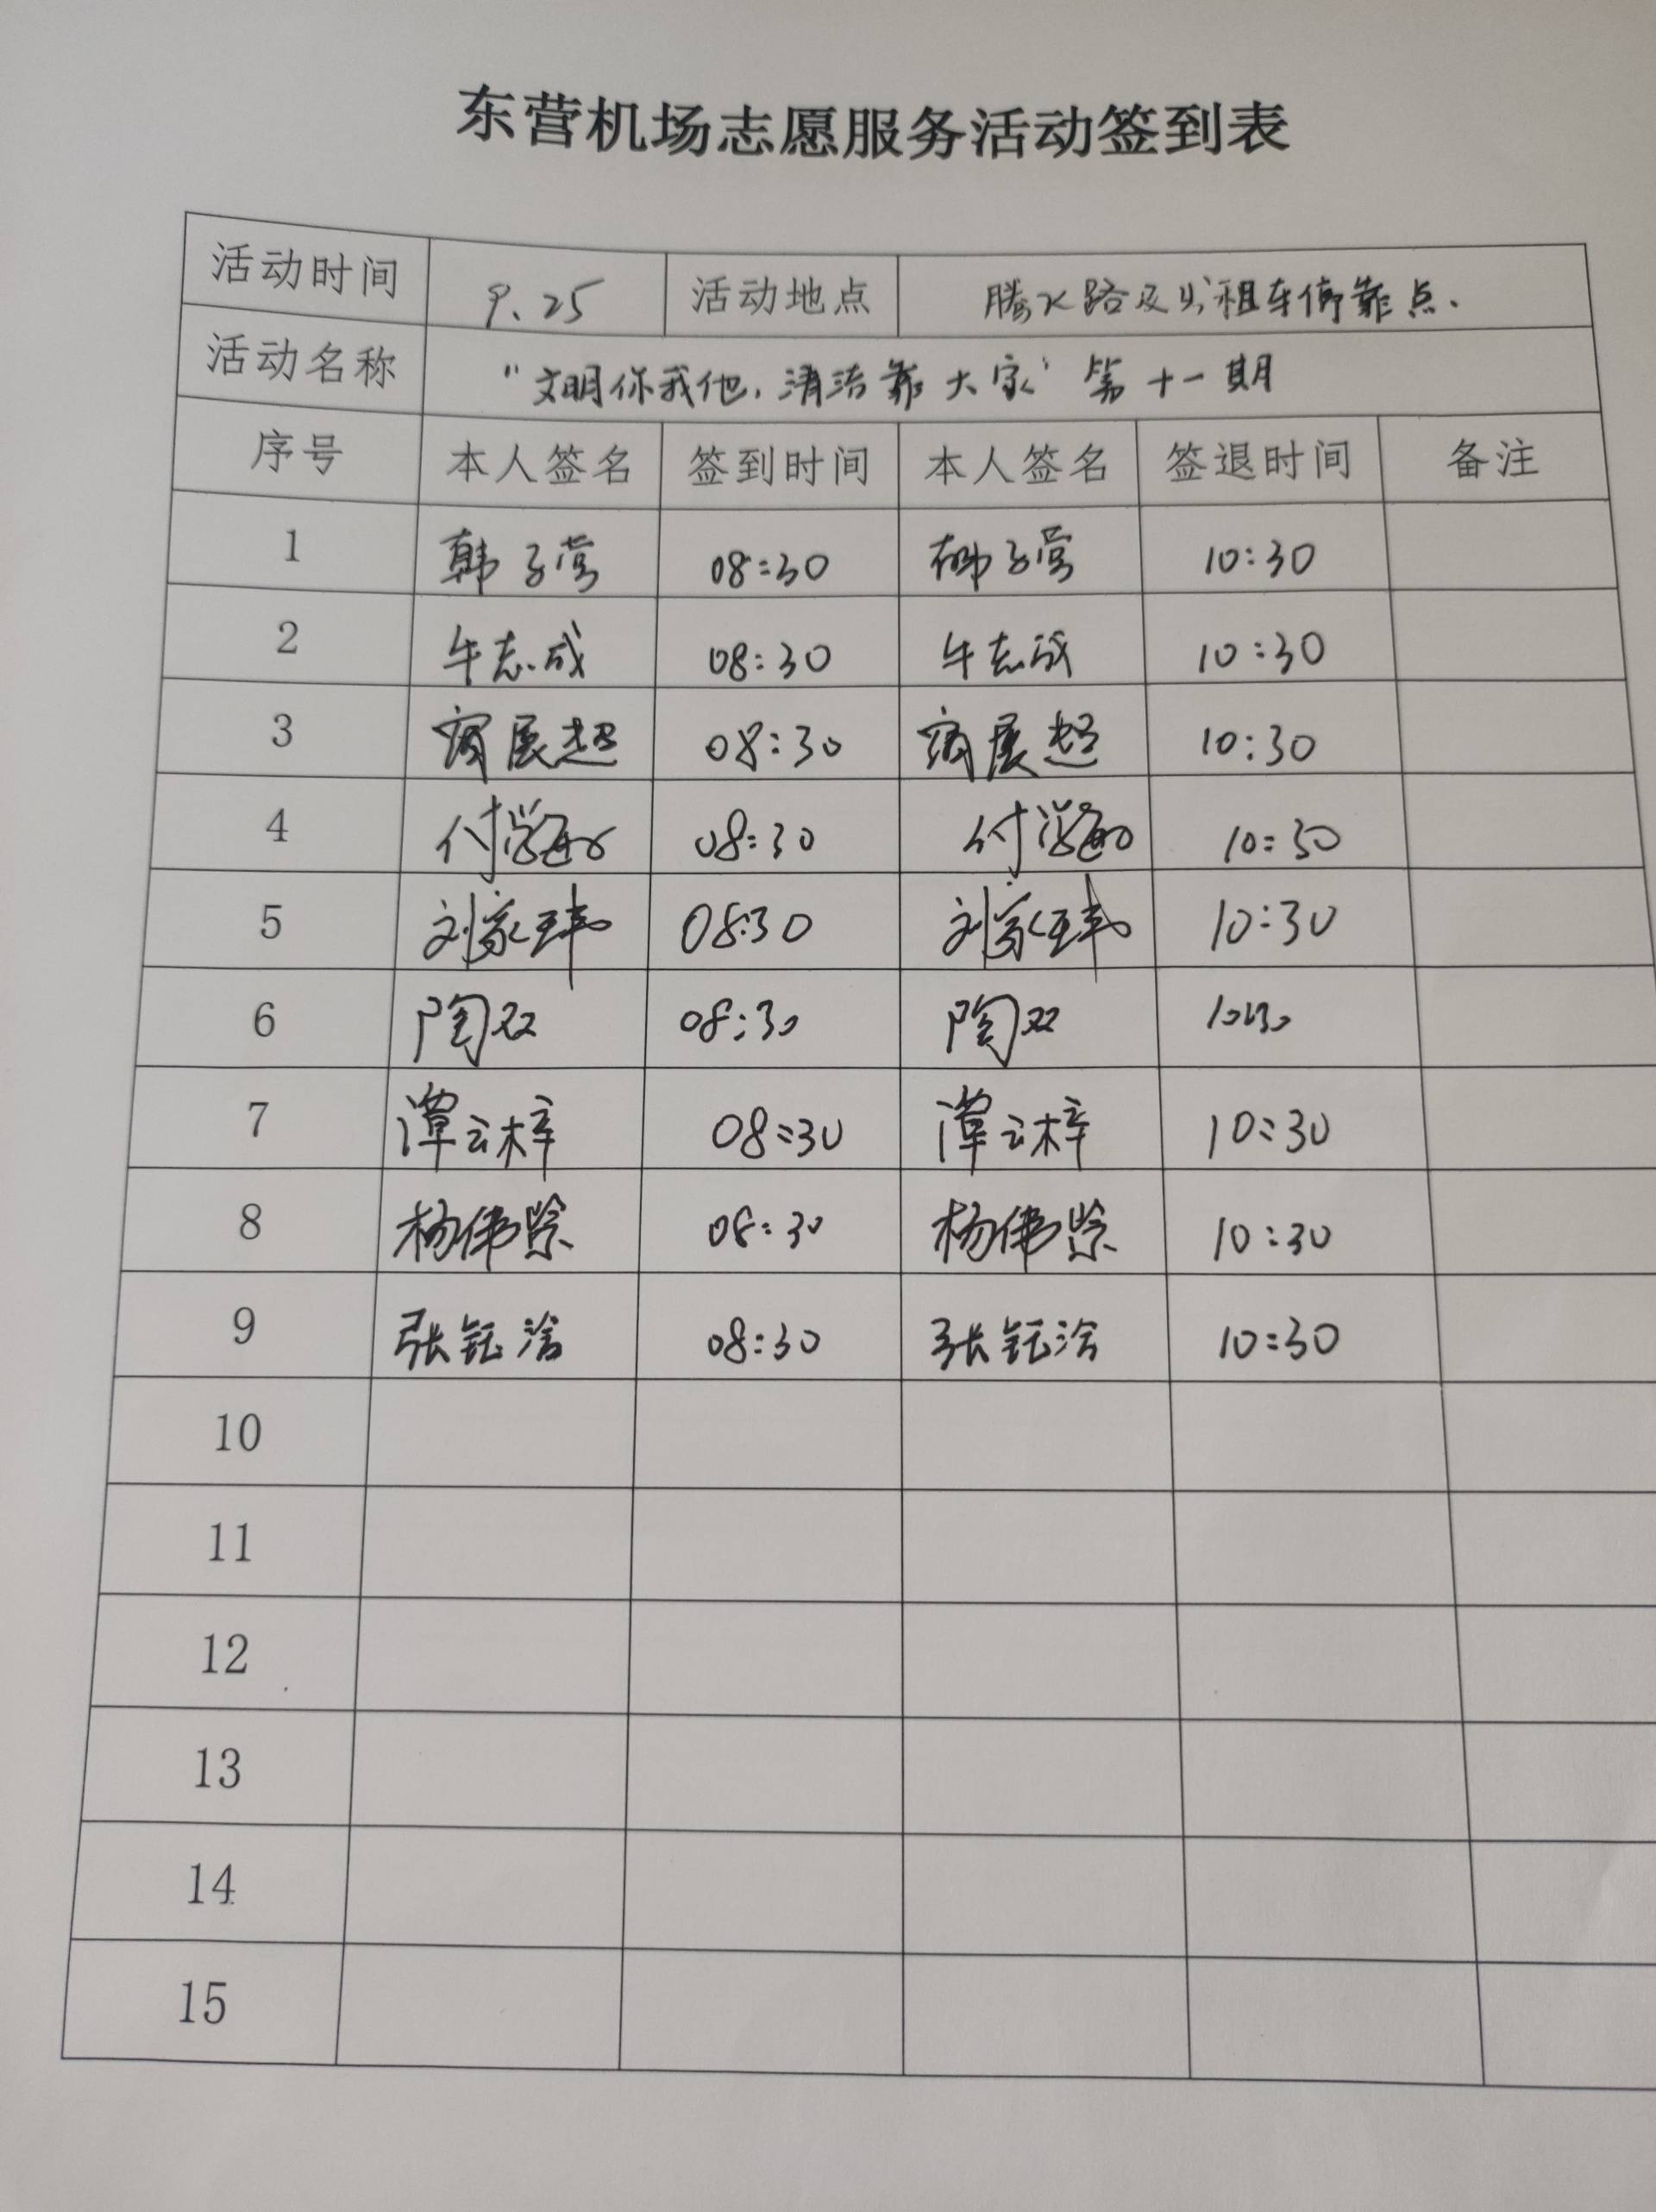 东营机场志愿服务活动签到表
活动时间 9.25 活动地点 腾飞路及出租车停靠点.
活动名称 "文明你我他,清洁靠大家"第十一期
序号 本人签名 签到时间 本人签名 签退时间 备注
1 韩子堂 08:30 韩子堂 10:30
2 牛志成 08:30 牛志成 10:30
3 展超 08:30 展超 10:30
4 付学海 08:30 付学海 10:30
5 刘家玮 08:30 刘家玮 10:30
6 陶双 08:30 陶双 10:30
7 谭云梓 08:30 谭云梓 10:30
8 杨伟 08:30 杨伟 10:30
9 张钰 08:30 张钰 10:30
10
11
12
13
14
15